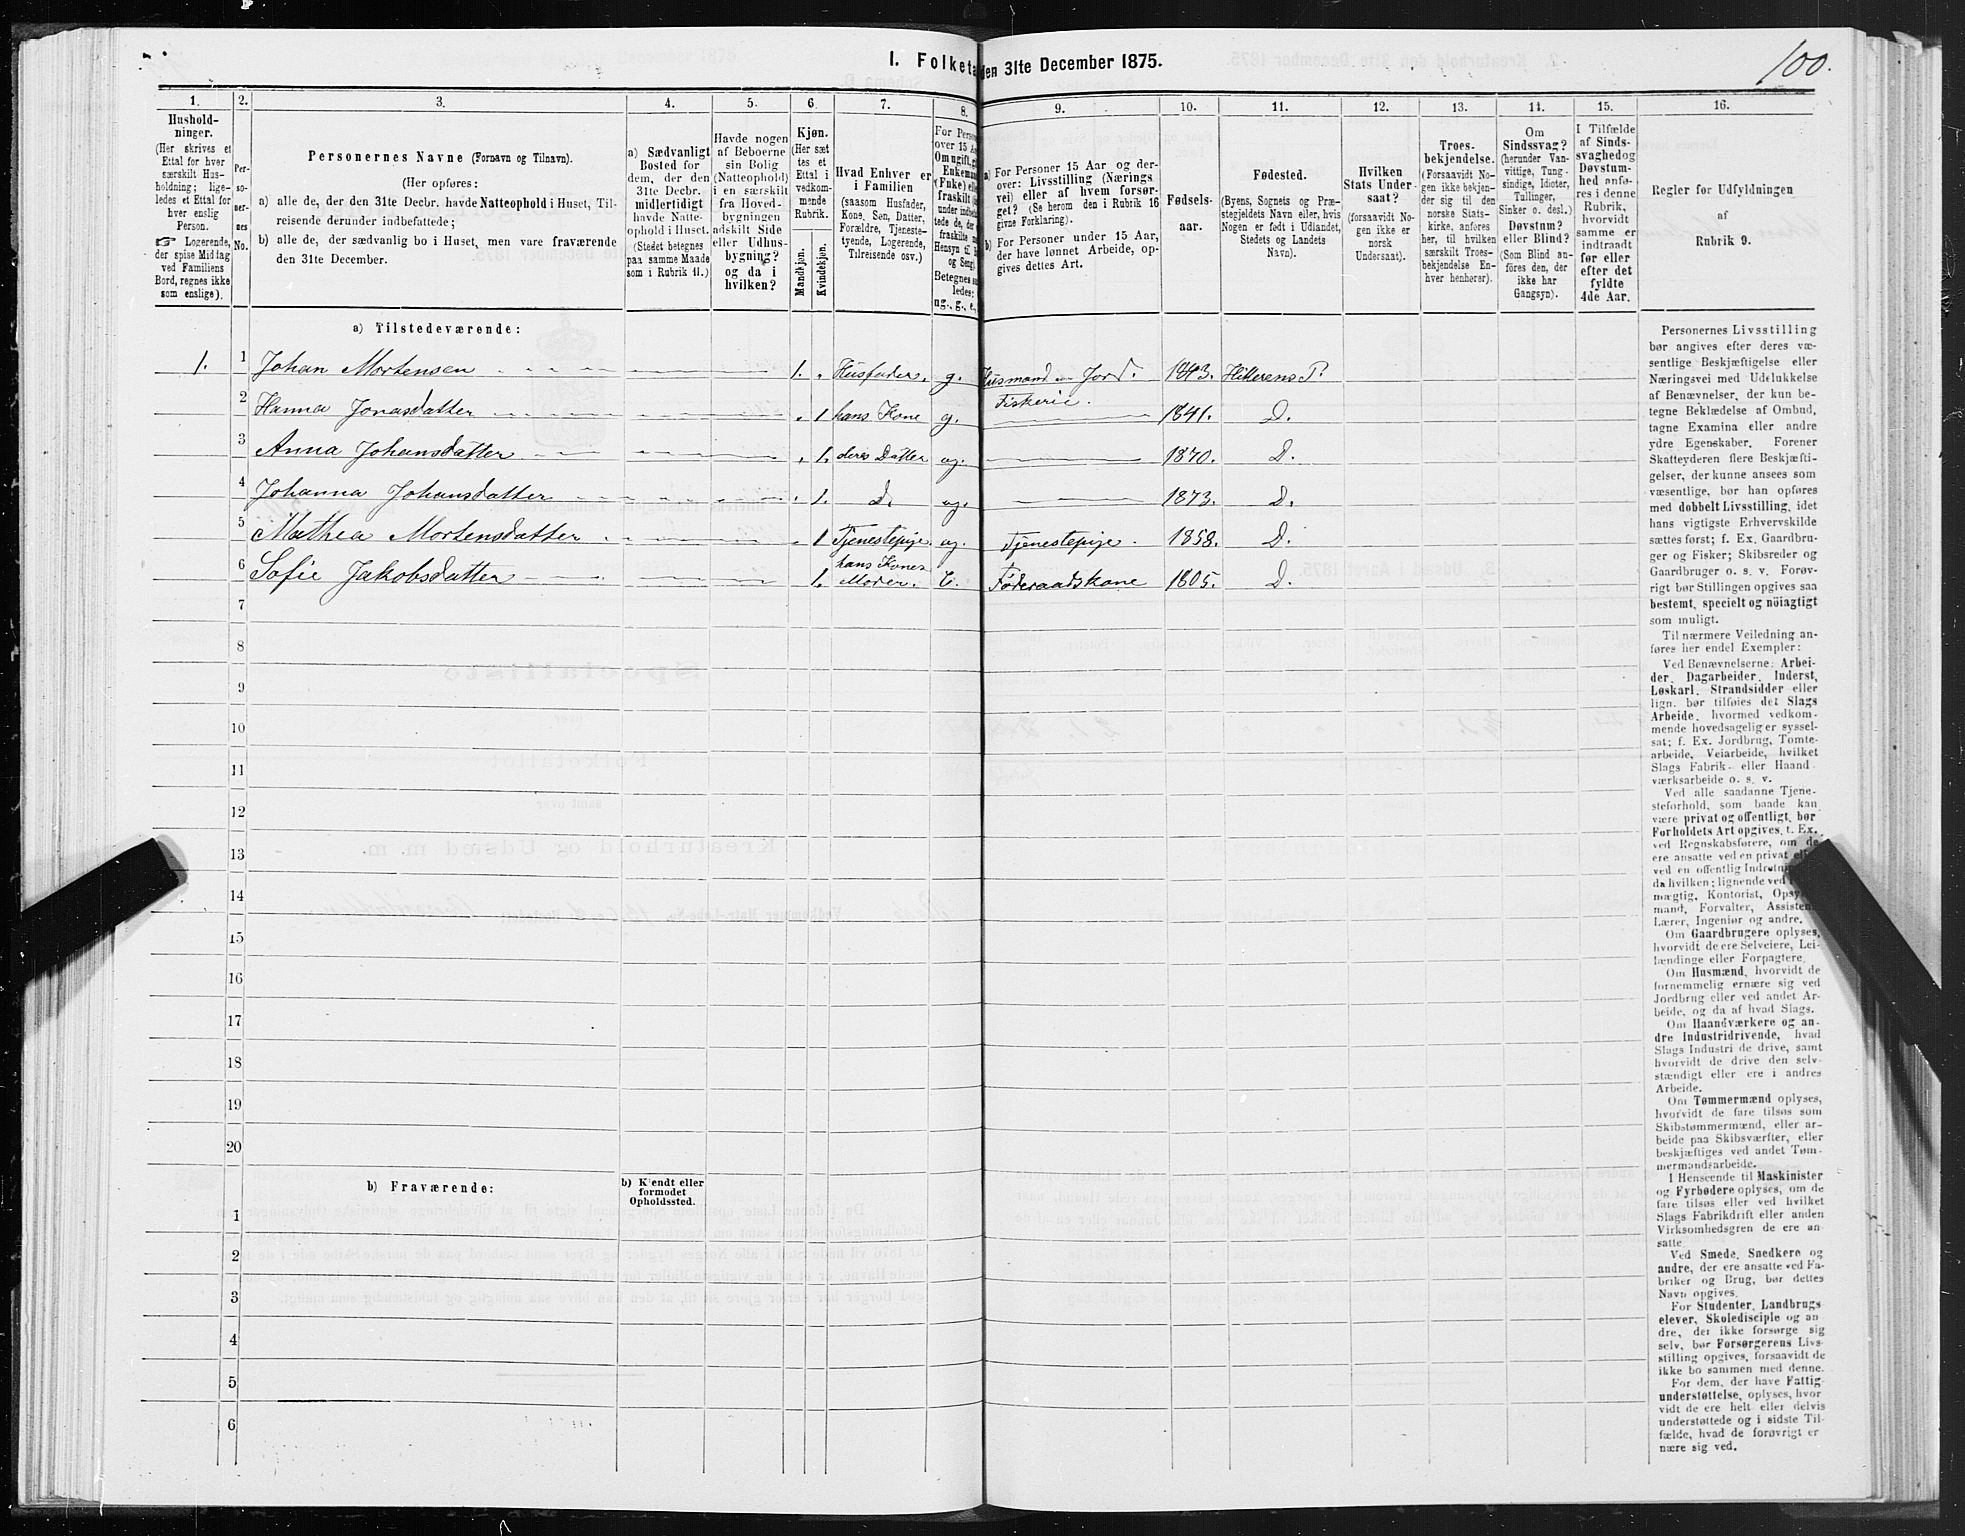 100.
I. Folketa
den 31te December 1875.
1.
2.
3.
4.
5.
6
7.
8.
9.
10.
11.
12.
13.
14.
15.
16.
Hushold-
ninger.
(Her skrives et
Ettal for hver
særskilt Hus-
holdning; lige-
ledes et Ettal for
hver enslig
Person.
☞ Logerende,
der spise Middag
ved Familiens
Bord, regnes ikke
som enslige).
Per-
so-
ner-
nes
No.
Personernes Navne (Fornavn og Tilnavn).
(Her opføres:
a) alle de, der den 31te Decbr. havde Natteophold i Huset, Til-
reisende derunder indbefattede;
b) alle de, der sædvanlig bo i Huset, men vare fraværende
den 31te December.
a) Sædvanligt
Bosted for
dem, der den
31te Decbr.
midlertidigt
havde Natte-
ophold i Huset.
(Stedet betegnes
paa samme Maade
som i Rubrik 11.)
Havde nogen
af Beboerne
sin Bolig
(Natteophold)
i en særskilt
fra Hoved-
bygningen
adskilt Side
eller Udhus-
bygning?
og da i
hvilken?
Kjøn.
(Her sæt
tes et
Ettal i
vedkom-
mende
Rubrik.
Mandkjøn.
Kvindekjøn.
Hvad Enhver er
i Familien
(saasom Husfader,
Kone, Søn, Datter,
Forældre, Tjeneste-
tyende, Logerende,
Tilreisende osv.)
For Perso
over 15 A
Om ugift, g
Enkema
(Enke) ell
fraskilt
under indb
tede de, de
fraskilte
Hensyn til
og Seng).
Betegnes s
ledes:
ug., g., e.,
a) For Personer 15 Aar og der-
over: Livsstilling (Nærings
vei) eller af hvem forsør-
get? (Se herom den i Rubrik 16
givne Forklaring).
b) For Personer under 15 Aar,
der have lønnet Arbeide, op-
gives dettes Art.
Fødsels-
aar.
Fødested.
(Byens, Sognets og Præ-
stegjeldets Navn eller, hvis
Nogen er født i Udlandet,
Stedets og Landets
Navn).
Hvilken
Stats Under-
saat?
(forsaavidt No-
gen ikke er
norsk
Undersaat).
Troes-
bekjendelse.
(Forsaavidt No-
gen ikke bekjen-
der sig til den
norske Stats-
kirke, anføres
her, til hvilken
særskilt Troes-
bekjendelse En-
hver henhører).
Om
Sindssvag?
(herunder Van-
vittige, Tung-
sindige, Idioter,
Tullinger,
Sinker o. desl.)
Døvstum?
eller Blind?
(Som Blind an-
føres den, der
ikke har
Gangsyn).
I Tilfælde
af Sinds-
svaghed og
Døvstum-
hed anfø-
res i denne
Rubrik,
hvorvidt
samme er
indtraadt
før eller
efter det
fyldte
4de Aar.
Regler for Udfyldningen
af
Rubrik 9.
a) Tilstedeværende:
1. 1 Johan Mortensen 1. Husfader. g. Husmand Jord. 1843. Hitterens P.
Fiskerie.
2 Hanna Jonasdatter 1 hans Kone g. 1841. D.
3 Anna Johansdatter 1. deres Datter ug. 1870. D.
4 Johanna Johansdatter 1. D. ug. 1873. D.
5 Mathea Mortensdatter 1 Tjenestepige ug. Tjenestepige. 1858. D.
6 Sofie Jakobsdatter 1. hans Kones
Moder. E. Føderaadskone 1805. D.
7
8
9
10
11
12
13
14
15
16
17
18
19
20
b) Fraværende:
b) Kjendt eller
formodet
Opholdssted.
1
2
3
4
5
6
Personernes Livsstilling
bør angives efter deres væ-
sentlige Beskjæftigelse eller
Næringsvei med Udelukkelse
af Benævnelser, der kun be-
tegne Beklædelse af Ombud,
tagne Examina eller andre
ydre Egenskaber. Forener
Skatteyderen flere Beskjæfti-
gelser, der kunne ansees som
væsentlige, bør han opføres
med dobbelt Livsstilling, idet
hans vigtigste Erhvervskilde
sættes først; f. Ex. Gaardbru-
ger og Fisker; Skibsreder og
Gaardbruger o. s. v. Forøv-
rigt bør Stillingen opgives saa
bestemt, specielt og nöiagtigt
som muligt.
Til nærmere Veiledning an-
føres her endel Exempler:
Ved Benævnelserne: Arbei-
der, Dagarbeider, Inderst,
Løskarl, Strandsidder eller
lign. bør tilføies det Slags
Arbeide, hvormed vedkom-
mende hovedsagelig er syssel-
sat; f. Ex. Jordbrug, Tomte-
arbeide, Veiarbeide, hvilket
Slags Fabrik- eller Haand
værksarbeide o. s. v.
Ved alle saadanne Tjene-
steforhold, som baade kan
være privat og offentligt, bør
Forholdets Art opgives, t. Ex.
ved Regnskabsførere, om de
ere ansatte ved en privat
ved en offentlig
da hvilken; lignende ved
mægtig, Kontorist,
mand, Forvalter,
Lærer, Ingeniør og andre.
Om Gaardbrugere oplyses,
hvorvidt de ere Selveiere, Lei-
lændinge eller Forpagtere.
Om Husmænd, hvorvidt de
fornemmelig ernære sig ved
Jordbrug eller ved andet Ar-
beide, og da af hvad Slags.
Om Haandværkere og an-
dre Industridrivende, hvad
Slags Industri de drive, samt
hvorvidt de drive den selv-
stændigt eller ere i andres
Arbeide.
Om Tømmermænd oplyses,
hvorvidt de fare tilsøs som
Skibstømmermænd, eller ar-
beide paa Skibsværfter, eller
beskjæftiges ved andet Tøm-
mermandsarbeide.
I Henseende til Maskinister
og Fyrbødere oplyses, om de
fare tilsøs eller ved hvilket
Slags Fabrikdrift eller anden
Virksomhedsgren de ere an-
satte.
Ved Smede, Snedkere og
andre, der ere ansatte ved Fa-
briker og Brug, bør dettes
Navn opgives.
For Studenter, Landbrugs
elever, Skoledisciple og an-
dre, der ikke forsørge sig
selv, bør Forsørgerens Livs-
stilling opgives, forsaavidt de
ikke bo sammen med denne.
For dem, der have Fattig-
understøttelse, oplyses, hvor
vidt de ere helt eller delvis
understøttede og i sidste Til-
fælde, hvad de forøvrigt er
nære sig ved.